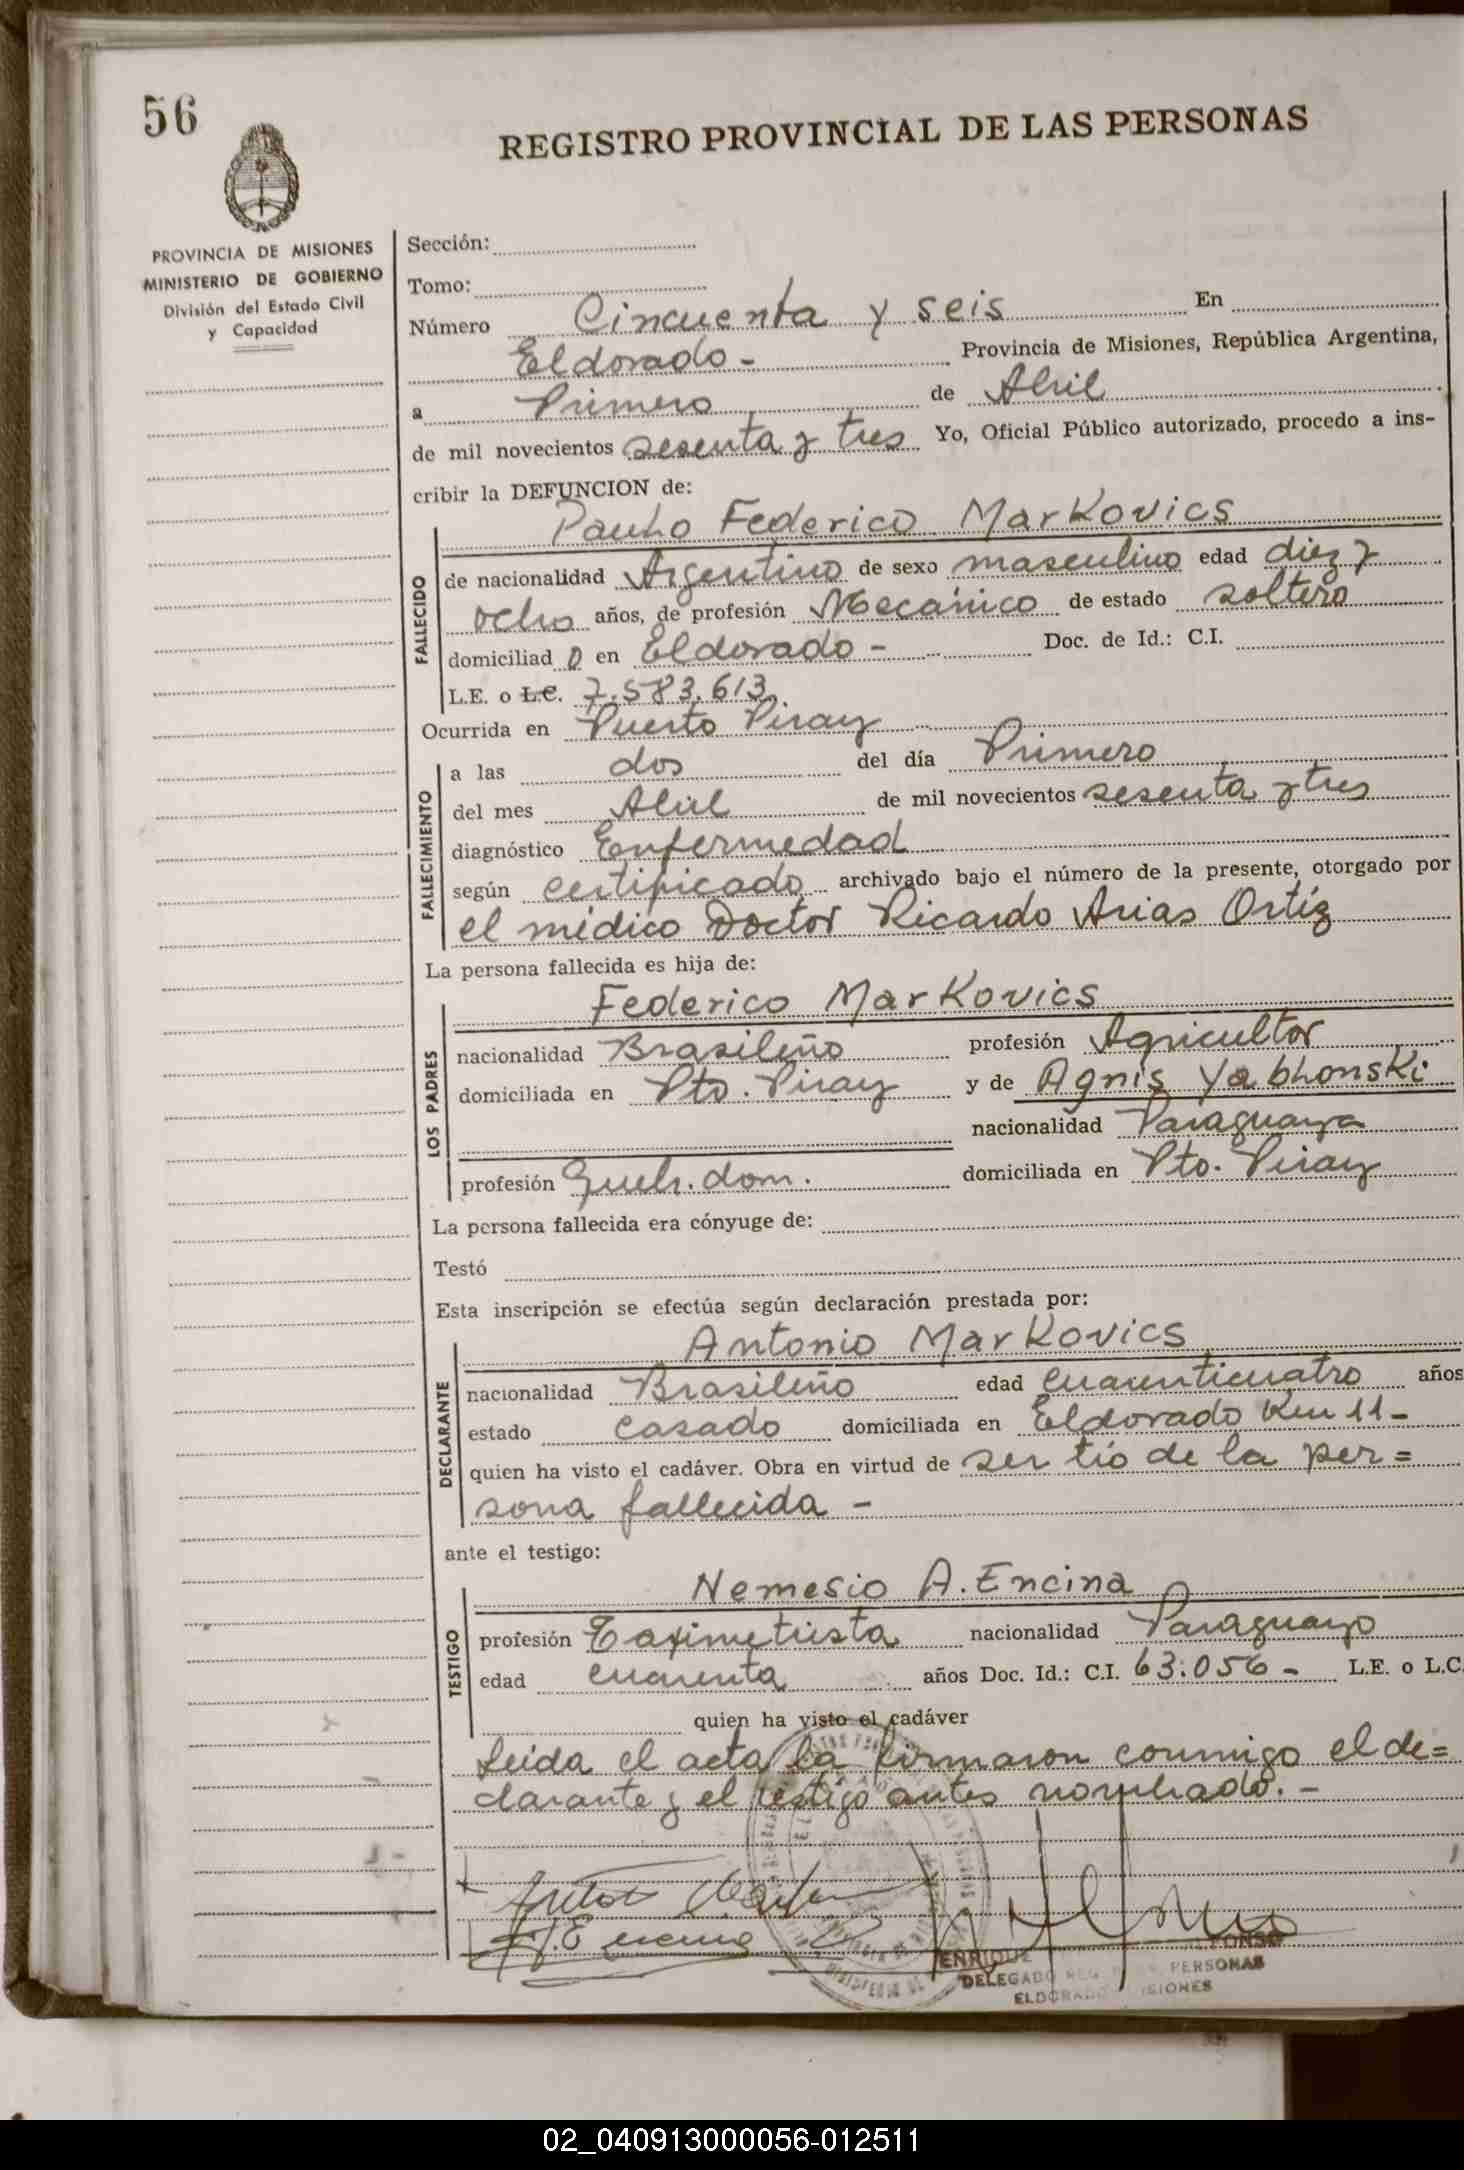 56
REGISTRO PROVINCIAL DE LAS PERSONAS
PROVINCIA DE MISIONES
MINISTERIO DE GOBIERNO
División del Estado Civil
y Capacidad
Sección:
Tomo:
Número Cincuenta y seis En
Eldorado - Provincia de Misiones, República Argentina,
a Primero de Abril
de mil novecientos sesenta y tres Yo, Oficial Público autorizado, procedo a ins-
cribir la DEFUNCION de:
Federico Markovics
FALLECIDO
de nacionalidad Argentino de sexo masculino edad diez y
ocho años, de profesión Mecánico de estado soltero
domiciliado en Eldorado - Doc. de Id.: C.I.
L.E. o L.C. 7.583.613
Ocurrida en Puerto Piray
FALLECIMIENTO
a las dos del día Primero
del mes Abril de mil novecientos sesenta y tres
diagnóstico Enfermedad
según certificado archivado bajo el número de la presente, otorgado por
el médico Doctor Ricardo Arias Ortíz
La persona fallecida es hija de:
LOS PADRES
Federico Markovics
nacionalidad Brasileño profesión Agricultor
domiciliada en Pto. Piray y de Agnis Yabhonski
nacionalidad Paraguaya
profesión Queh. dom. domiciliada en Pto. Piray
La persona fallecida era cónyuge de:
Testó
Esta inscripción se efectúa según declaración prestada por:
DECLARANTE
Antonio Markovics
nacionalidad Brasileño edad cuarenticuatro años
estado casado domiciliada en Eldorado Km 11-
quien ha visto el cadáver. Obra en virtud de ser tío de la per=
sona fallecida -
ante el testigo:
TESTIGO
Nemesio A. Encina
profesión Taximetrista nacionalidad Paraguayo
edad cuarenta años Doc. Id.: C.I. 63.056 - L.E. o L.C.
quien ha visto el cadáver
Leida el acta la firmaron conmigo el de=
clarante y el testigo antes nombrado. -
ENRIQUE
DELEGADO REG. PERSONAS
ELDORADO MISIONES
02_040913000056-012511